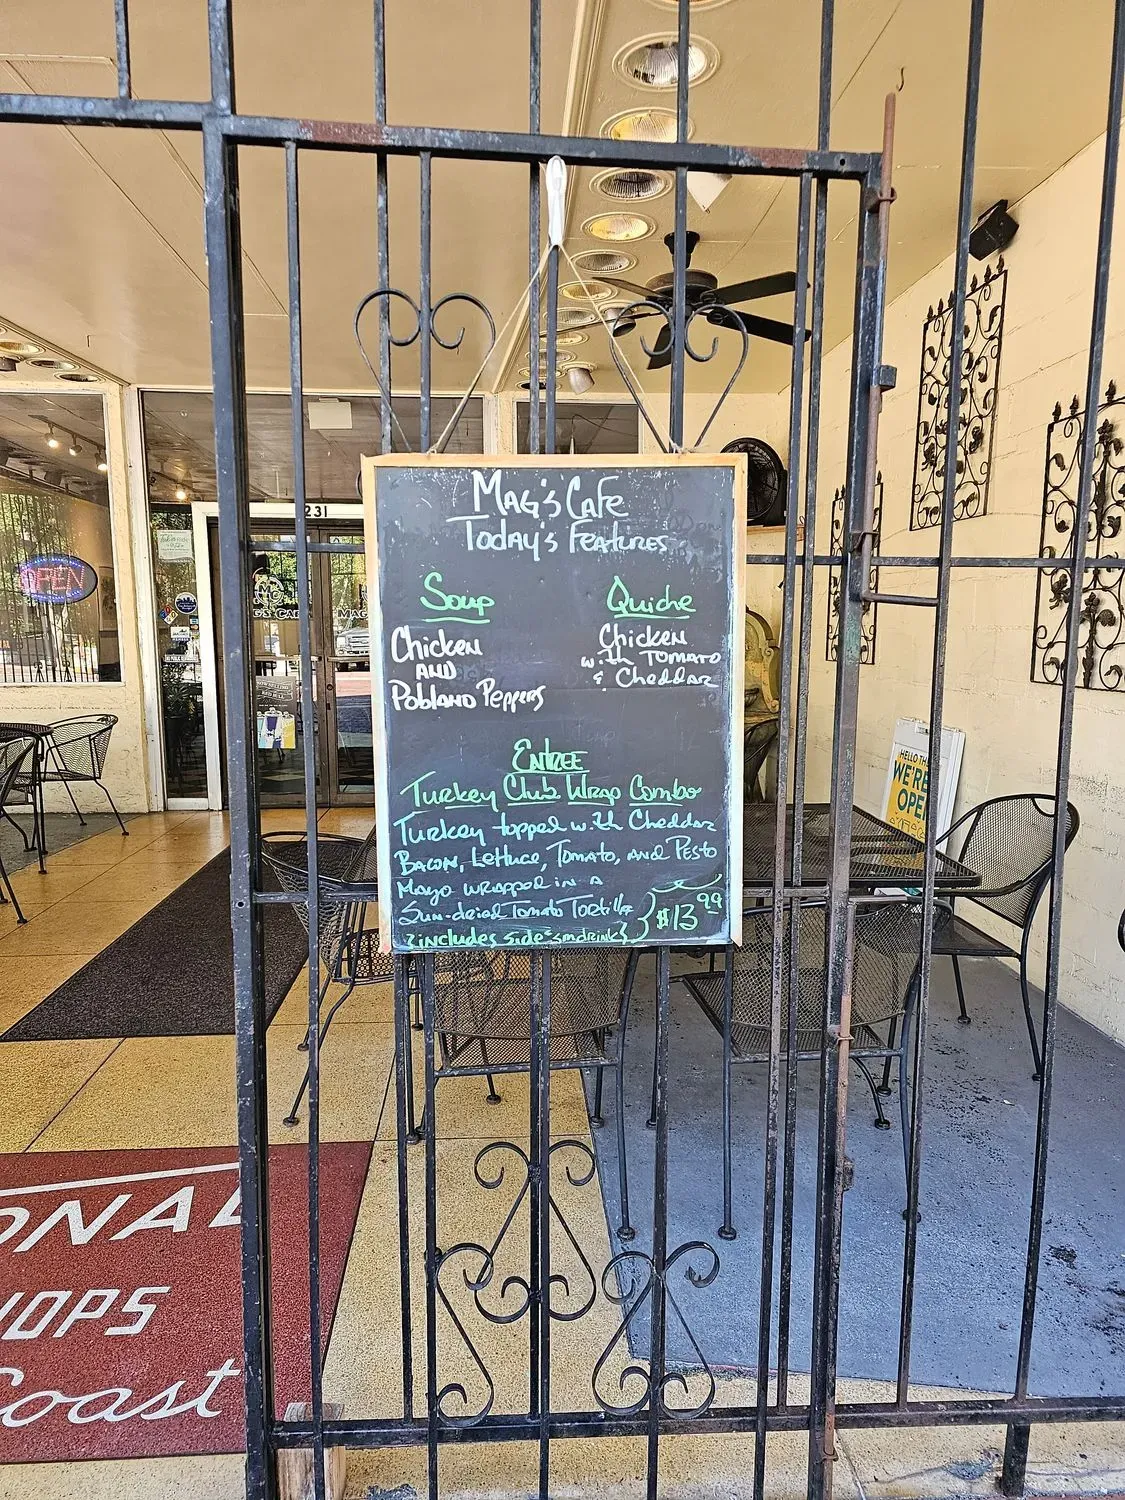 Mag's Cafe
Today's Features
Soup
Chicken
and
Poblano Peppers
Quiche
Chicken
with Tomato
& Cheddar
Entree
Turkey Club Wrap Combo
Turkey topped with Cheddar
Bacon, Lettuce, Tomato, and Pesto
Mayo wrapped in a
Sun-dried Tomato Tortilla
{includes side & sm drink}
$13.99
231
OPEN
HELLO
WE'RE
OPE
ONAL
HOPS
Coast